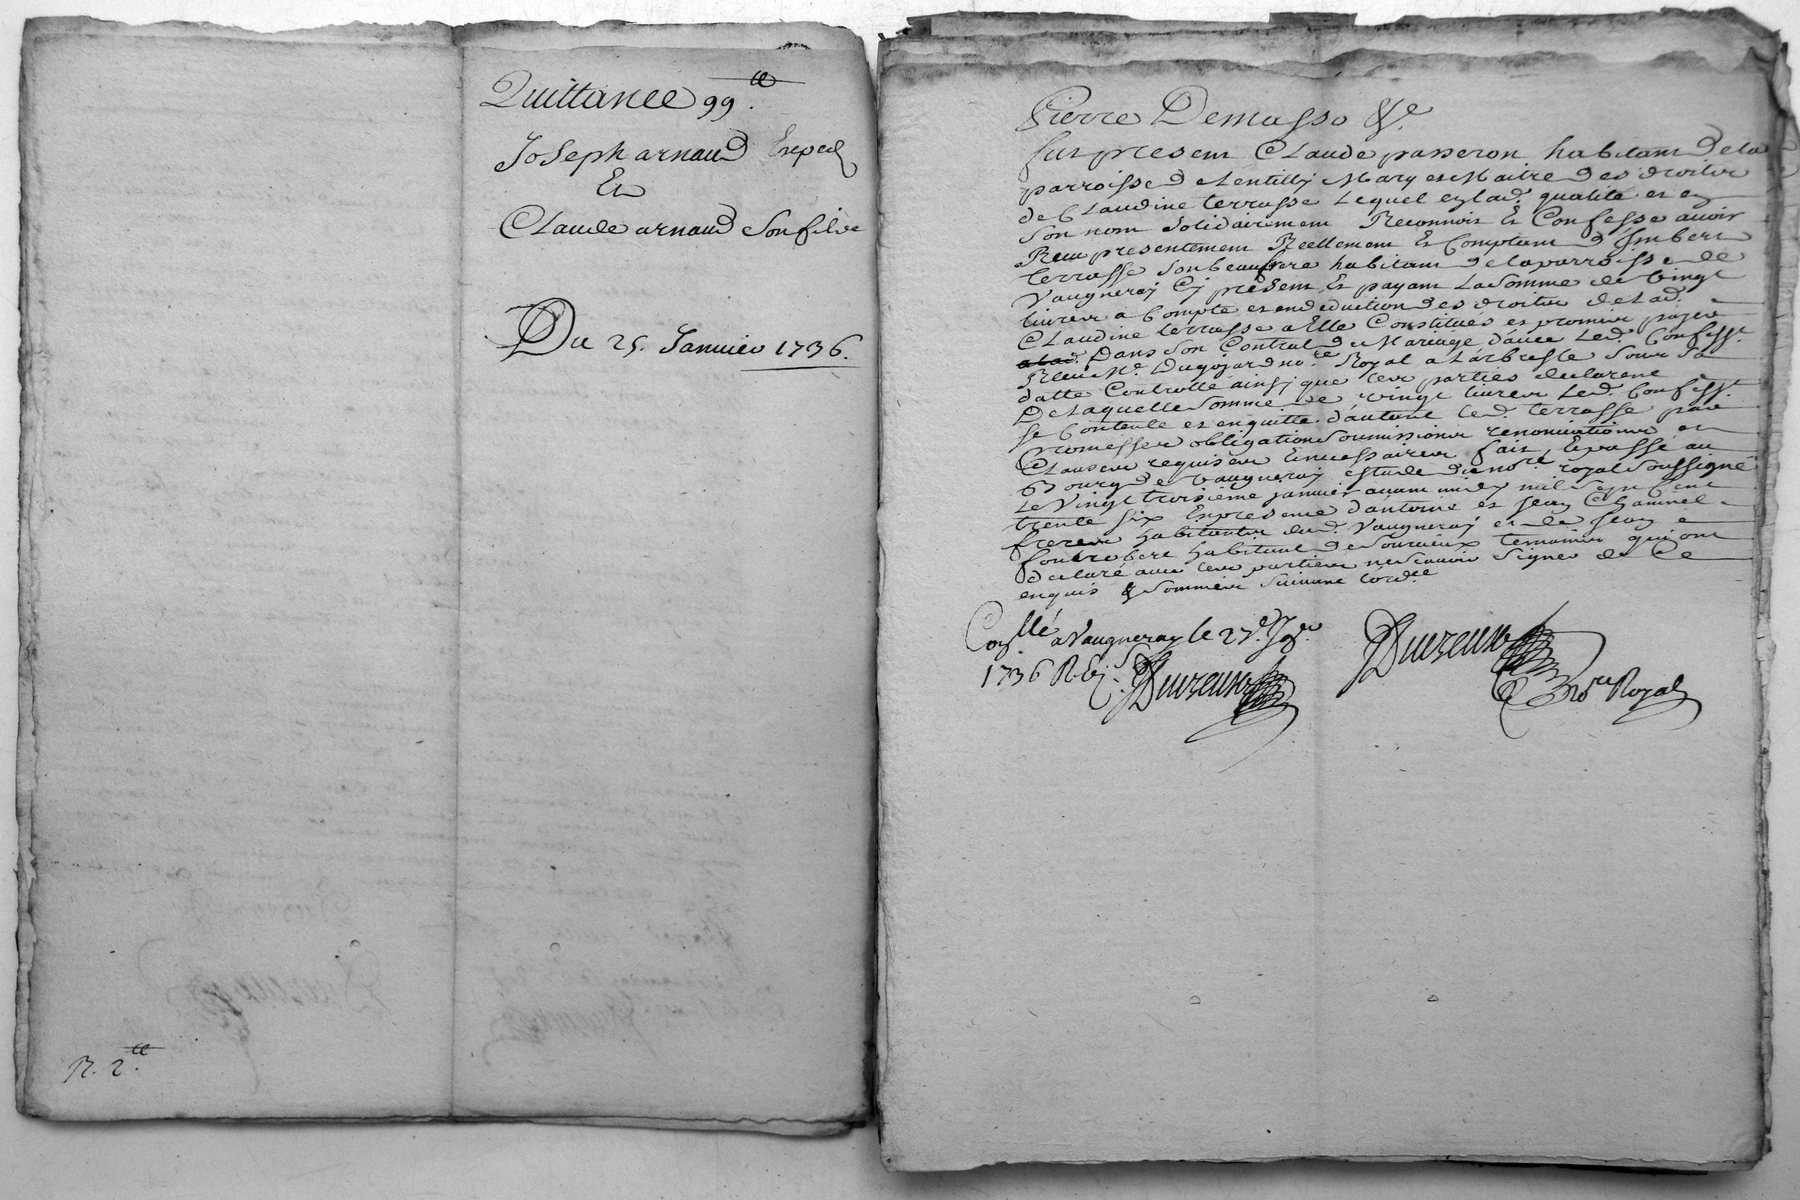 Quittance 99 ll.
Joseph arnaud Exped
Et
Claude arnaud Son fils
Du 25. Janvier 1736.
R. 2 ll.
Pierre Demasso &c.
fut present Claude passeron habitant de la
parroisse de Lentilly Mary et Maitre des droits
de Claudine terrasse Lequel en lad. qualité et en
Son nom Solidairement Reconnoit Et Confesse avoir
Receu presentement Reellement Et Comptant d'Imbert
terrasse Son beaufrere habitant de la parroisse de
Vaugneray Cy present Et payant La Somme de Vingt
livres a Compte et en deduction des droits de lad.
Claudine terrasse a Elle Constitués et promis payer
Dans Son Contrat de Mariage d'avec Led. Confesst.
Receu Me. Dugojard nore. Royal a Larbresle Sous Sa
datte Controllé ainsy que les parties declarent
De laquelle Somme de vingt livres Led. Confesst.
Se Contente et en quitte d'autant led. terrasse par
promesses obligations Soumissions renonciations et
Clauses requises & necessaires fait & passé au
Bourg de Vaugneray estude du nore. royal Soussigné
Le Vingt troisième janvier avant midy mil Sept Cent
trente Six En presence d'antoine et Jean Chaminel
freres habitants dud. Vaugneray et de Jean
fontrobert habitant de Sourcieux temoins qui ont
declaré avec les parties ne scavoir Signer de Ce
enquis & Sommés Suivant lordce
Conllé a Vaugneray le 27e. Jer.
1736 R. Duvzeuse
Duvzeuse
nore Royal